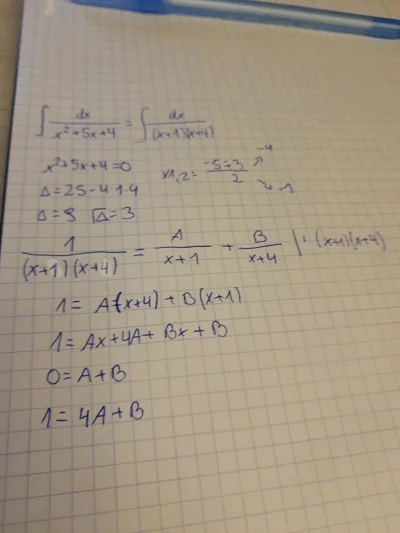 ∫ dx/(x²+5x+4) = ∫ dx/((x+1)(x+4))
x²+5x+4=0 x1,2= (-5±3)/2 ↗ -4 ↘ -1
Δ=25-4·1·4
Δ=9 √Δ=3
1/((x+1)(x+4)) = A/(x+1) + B/(x+4) |·(x+1)(x+4)
1= A(x+4)+B(x+1)
1=Ax+4A+Bx+B
0=A+B
1=4A+B